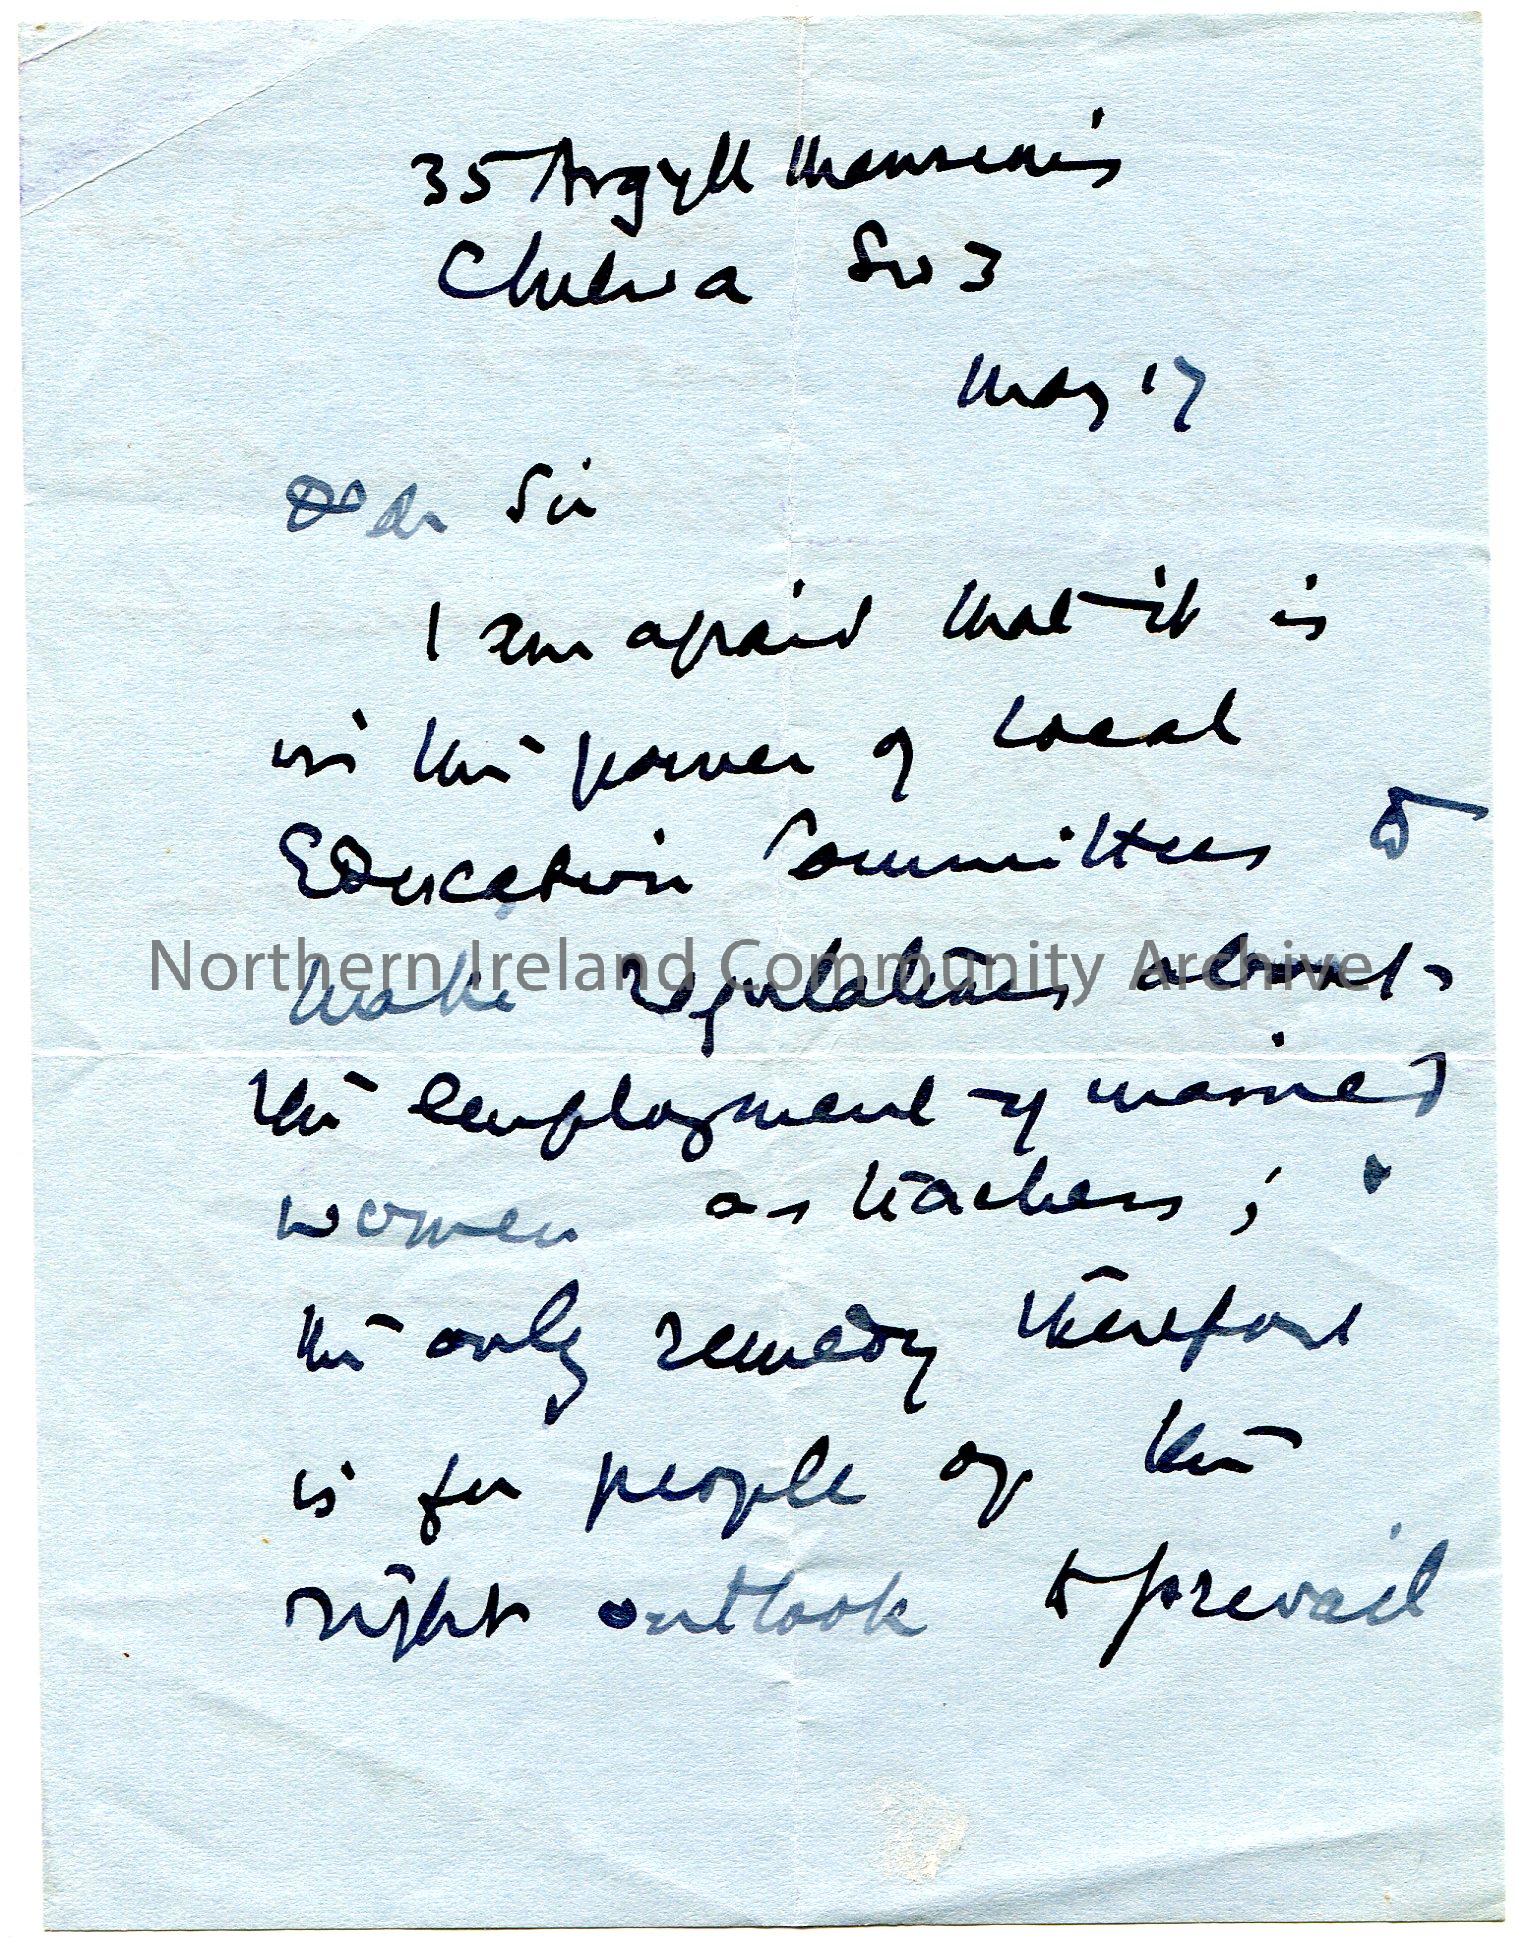 35 Argyll Mansions
Chelsea SW3
May 17
Dear Sir
I am afraid that it is
in the power of local
Education Committees to
make regulations about
Northern Ireland Community Archive
the employment of married
women as teachers;
the only remedy therefore
is for people of the
right outlook to prevail